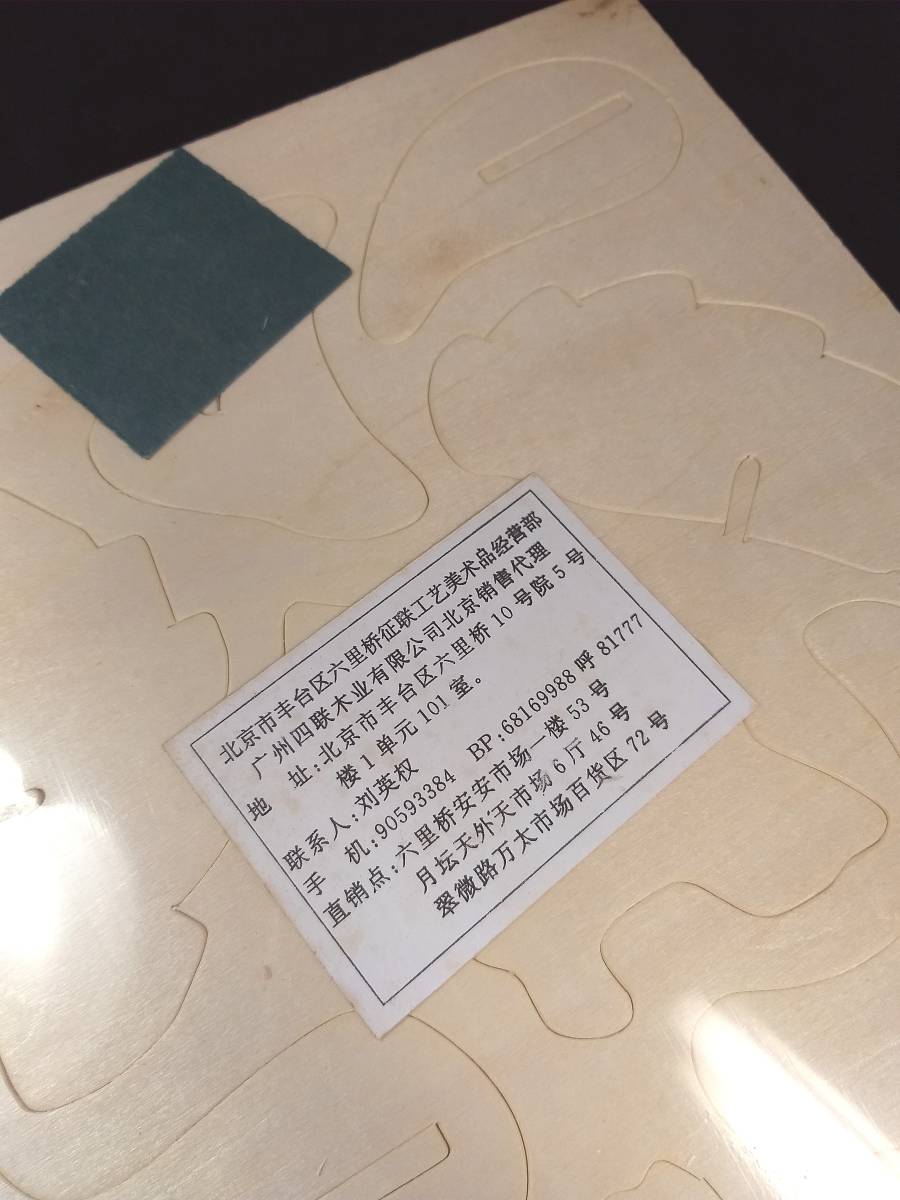 北京市丰台区六里桥征联工艺美术品经营部
广州四联木业有限公司北京销售代理
地 址:北京市丰台区六里桥10号院5号
楼1单元101室。
联系人:刘英权
手 机:90593384 BP:68169988呼81777
直销点:六里桥安安市场一楼53号
月坛天外天市场6厅46号
翠微路万太市场百货区72号